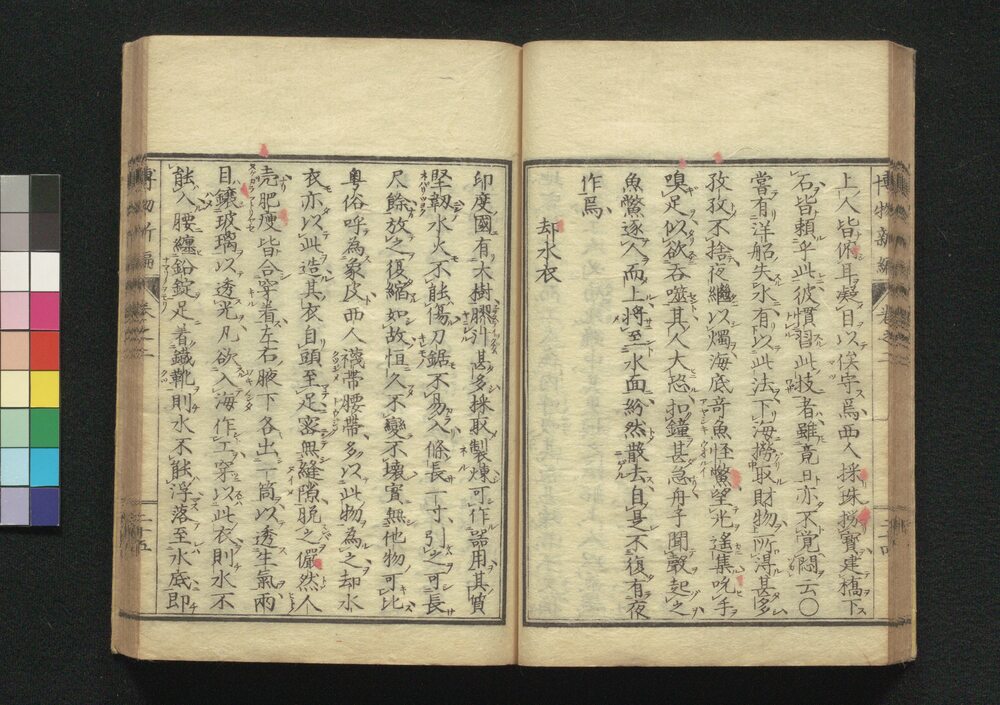 博物新編
卷之一
二十四
上人皆俯耳凝目以俟守焉西人採珠撈寶建橋下
石皆賴乎此彼慣習此技者雖竟日亦不覺悶云○
嘗有洋船失水有以此法下海撈取財物所得甚多
孜孜不捨夜繼以燭海底奇魚怪鱉望光遙集吮手
嗅足似欲吞噬其人大恐扣鐘甚急舟子聞聲起之
魚鱉逐人而上將至水面紛然散去自是不復有夜
作焉
却水衣
印度國有大樹膠汁甚多採取製煉可作器用其質
堅韌水火不能傷刀鋸不易入條長一寸引之可長
尺餘放之復縮如故恒久不變不壞實無他物可比
粵俗呼為象皮西人襪帶腰帶多以此物為之却水
衣亦以此造其衣自頭至足密無縫隙脫之儼然人
売肥瘦皆合穿着左右腋下各出一筒以透生氣兩
目鑲玻璃以透光凡欲入海作工穿以此衣則水不
能入腰纏鉛錠足着鐵靴則水不能浮落至水底即
博物新編
卷之一
二十五